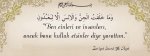 وَمَا خَلَقْتُ الْجِنَّ وَالْإِنْسَ إِلَّا لِيَعْبُدُونِ
"Ben cinleri ve insanları,
ancak bana kulluk etsinler diye yarattım."